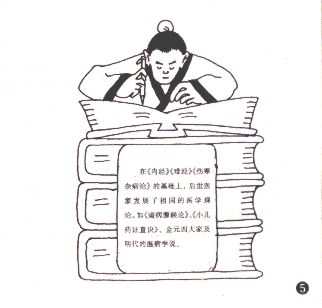 在《内经》《难经》《伤寒
杂病论》的基础上，后世医
家发展了祖国的医学理
论。如《诸病源候论》、《小儿
药证直诀》、金元四大家及
明代的温病学说。
5